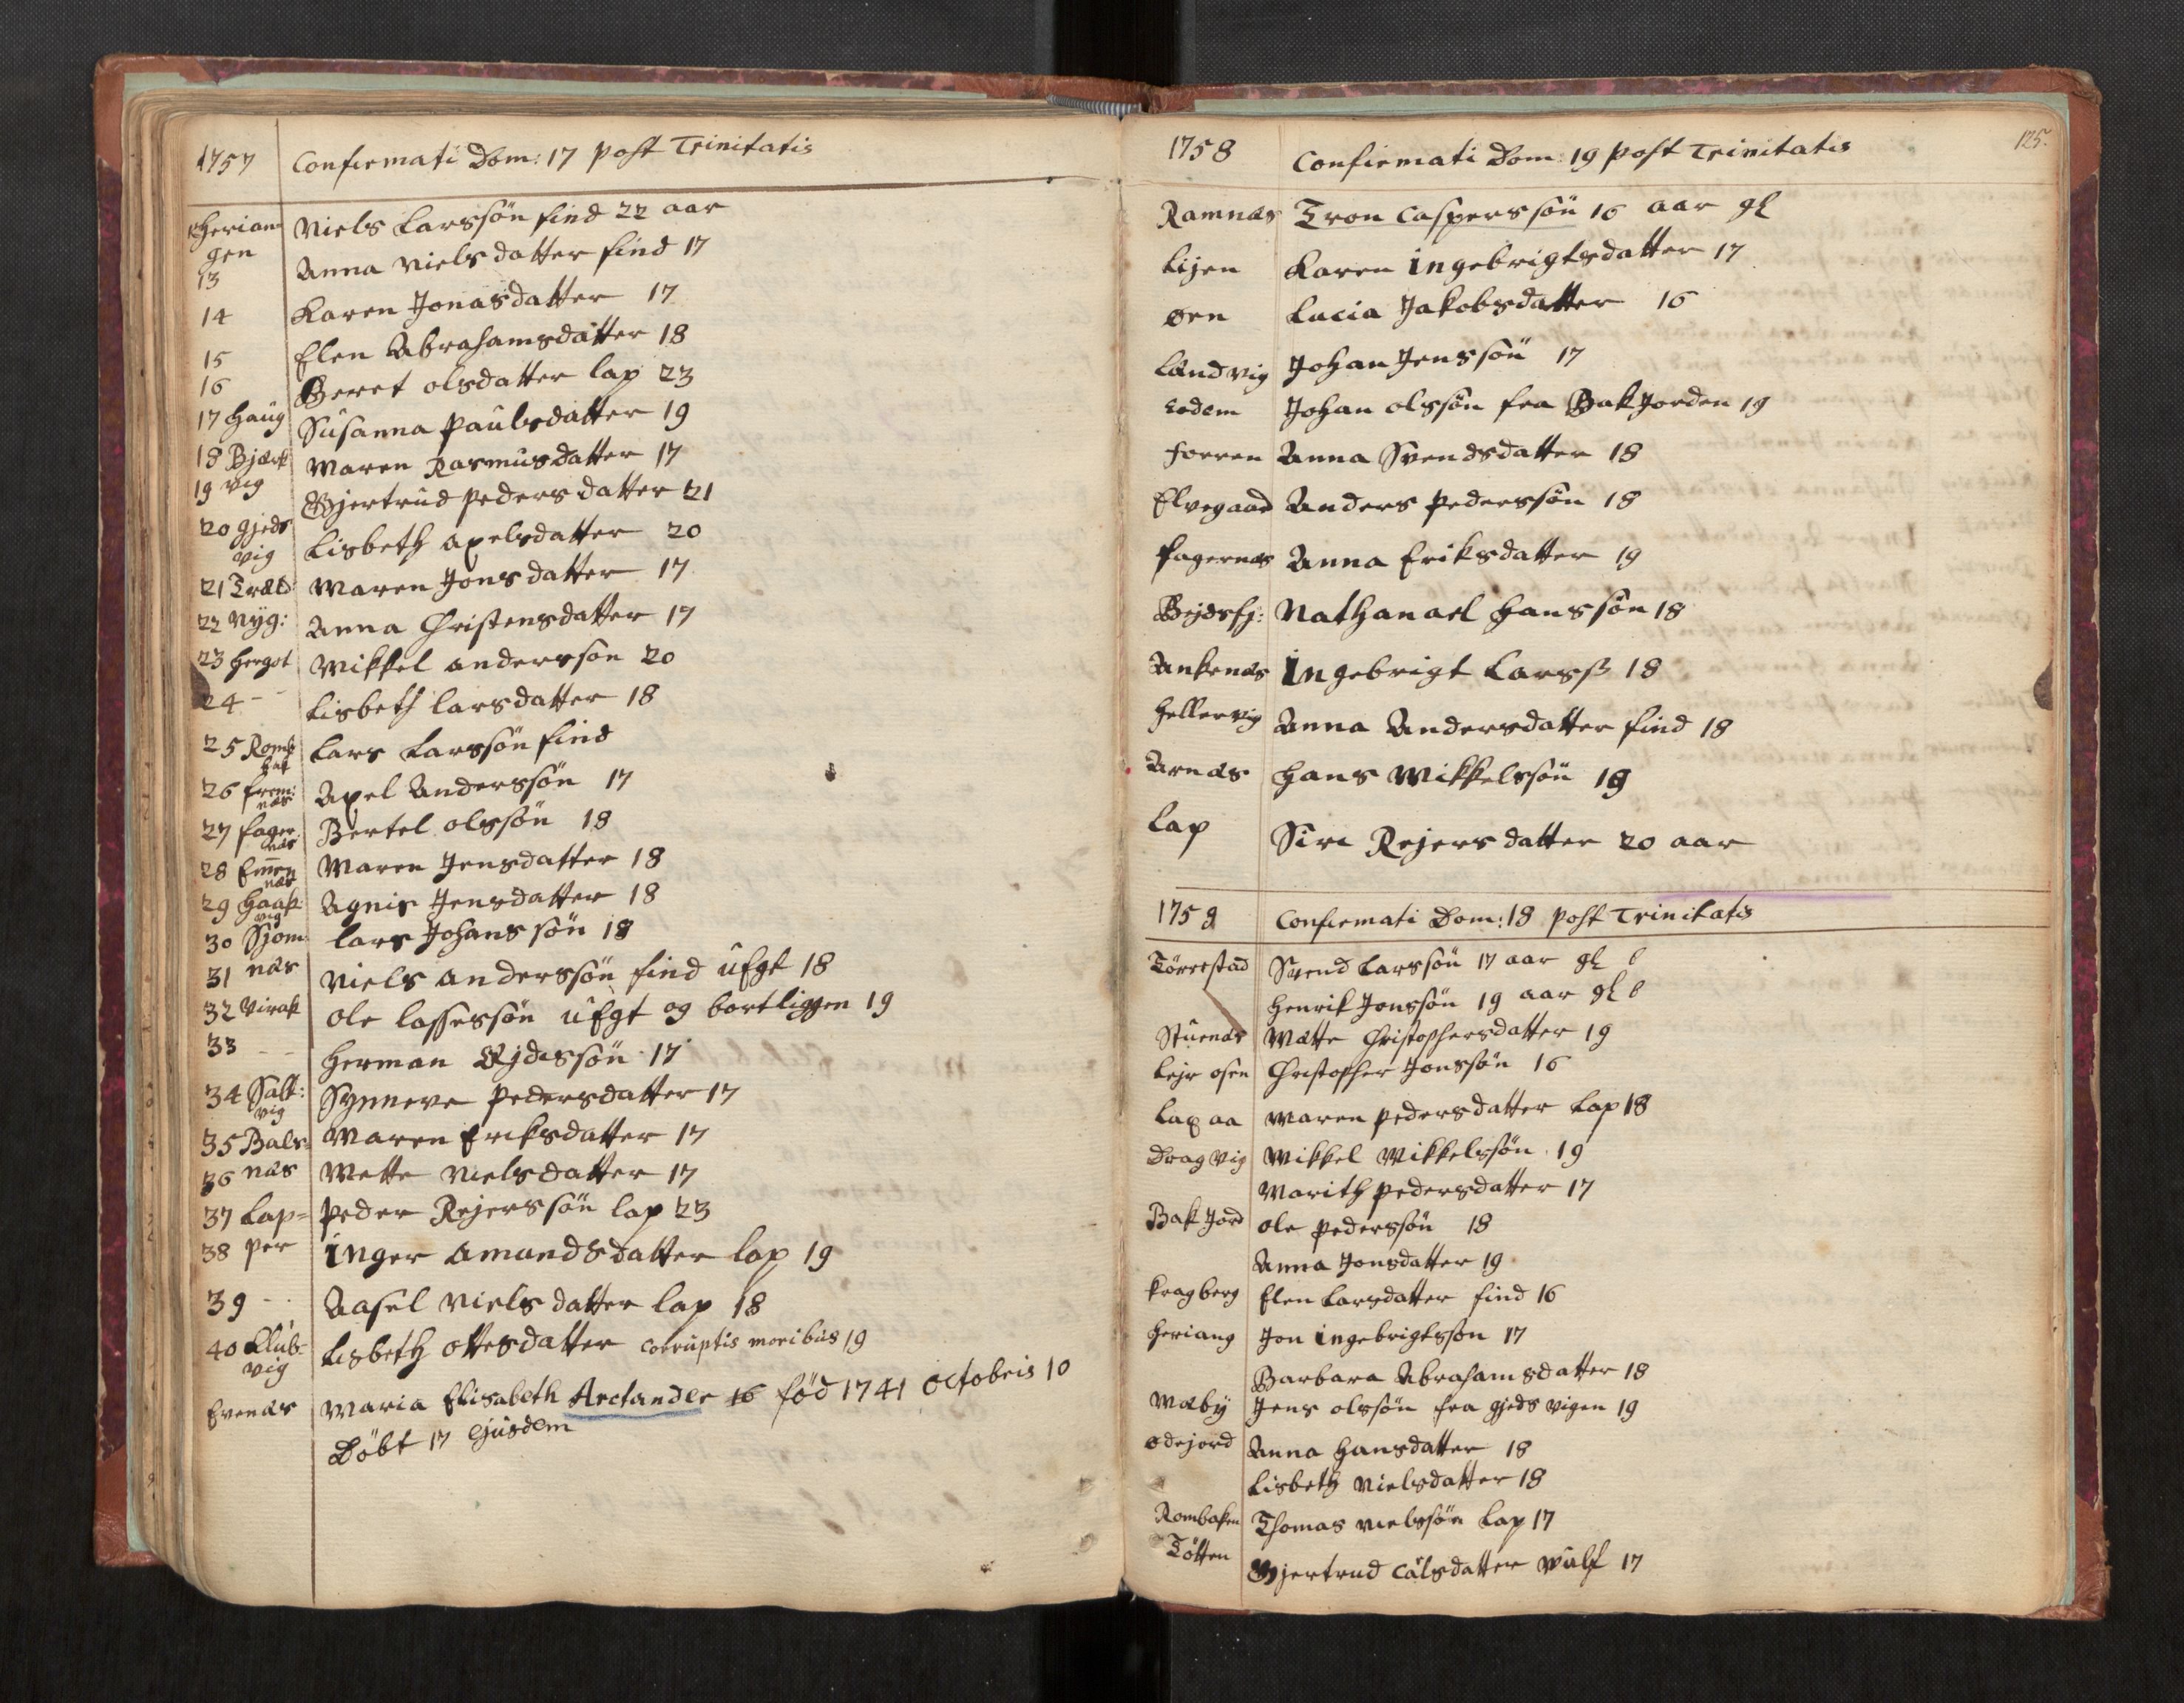 1757 Confirmati Dom: 17 post Trinitatis
Herian= Niels Larssön find 22 aar
gen
13 Anna Nielsdatter find 17
14 Karen Jonasdatter 17
15 Elen Abrahamsdatter 18
16 Beret olsdatter lap 23
17 Haug Susanna Paulsdatter 19
18 Bjerk Maren Rasmusdatter 17
19 vig Gjertrud Pedersdatter 21
20 Gjeds Lisbeth Axelsdatter 20
vig
21 Træld: Maren Jonsdatter 17
22 Nyg: Anna Christensdatter 17
23 Hergot Mikkel anderssön 20
24 - - Lisbeth larsdatter 18
25 Romb Lars Larssön find
bak
26 Frem: Axel Anderssön 17
næs
27 Fager Bertel olssön 18
næs
28 Emmen Maren Jensdatter 18
næs
29 Haak: Agnis Jensdatter 18
vig
30 Sjom: lars Johanssön 18
31 næs Niels anderssön find ufgt 18
32 Virak Ole lassessön ufgt og bortliggen 19
33 - - Herman Ejdessön 17
34 Salt: Synneve Pedersdatter 17
vig
35 Bals= Maren Eriksdatter 17
36 næs Mette Nielsdatter 17
37 Lap= Peder Rejerssön lap 23
38 per inger amundsdatter lap 19
39 - - Aasel Nielsdatter lap 18
40 Klub= Lisbeth Ottesdatter corruptis moribus 19
vig
Evenæs Maria Elisabeth Arctander 16 född 1741 Octobris 10
Döbt 17 ejusdem
125.
1758 Confirmati Dom: 19 post Trinitatis
Ramnæs Tron Casperssön 16 aar gl
Lijen Karen ingebrigtsdatter 17
Øen Lucia Jakobsdatter 16
Landvig Johan Jenssön 17
Eodem Johan olssön fra Bakjorden 19
Forren Anna Svendsdatter 18
Elvegaard Anders Pederssön 18
Fagernæs Anna Eriksdatter 19
Bejdsfj: Nathanael Hanssön 18
Ankenæs ingebrigt Larss 18
Hellervig Anna Andersdatter find 18
Arnæs Hans Mikkelssön 19
Lap Siri Rejersdatter 20 aar
1759 Confirmati Dom: 18 post Trinitatis
Törrestad Svend Larssön 17 aar gl
Henrik Jonssön 19 aar gl
Stuenæs Mætte Christophersdatter 19
Lejr osen Christopher Jonssön 16
Lax aa Maren Pedersdatter Lap 18
Dragvig Mikkel Mikkelssön 19
Marith Pedersdatter 17
Bakjord Ole Pederssön 18
Anna Jonsdatter 19
Kragberg Elen Larsdatter find 16
Heriang Jon ingebrigtssön 17
Barbara Abrahamsdatter 18
Mæby Jens olssön fra Gjedsvigen 19
Ødejord Anna Hansdatter 18
Lisbeth Nielsdatter 18
Rombaken Thomas Nielssön Lap 17
Tötten Gjertrud Calsdatter Wulf 17